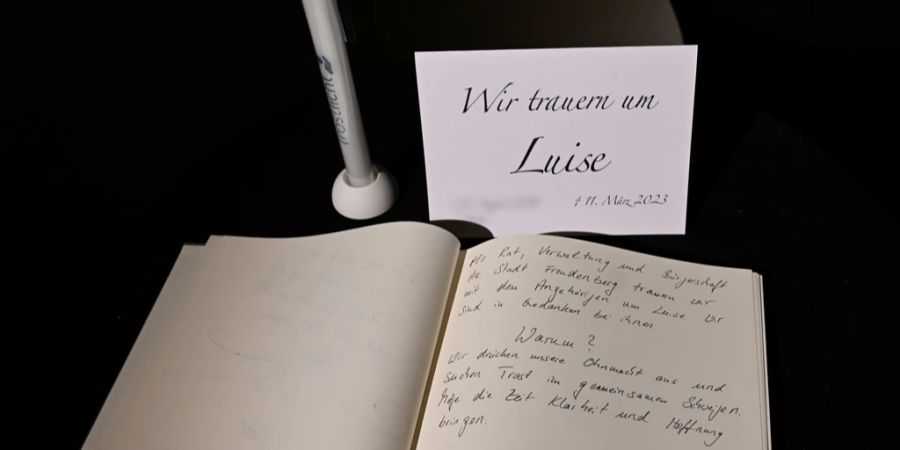 Trostlicht
Wir trauern um
Luise
† 11. März 2023
Als Rat, Verwaltung und Bürgerschaft
der Stadt Freudenberg trauern wir
mit den Angehörigen um Luise. Wir
sind in Gedanken bei ihnen.
Warum?
Wir drücken unsere Ohnmacht aus und
suchen Trost im gemeinsamen Schweigen.
Möge die Zeit Klarheit und Hoffnung
bringen.